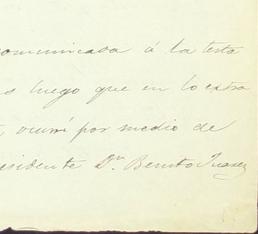 comunicada á la testa
s luego que en lo extra
ocurrí por medio de
esidente Dn. Benito Juarez